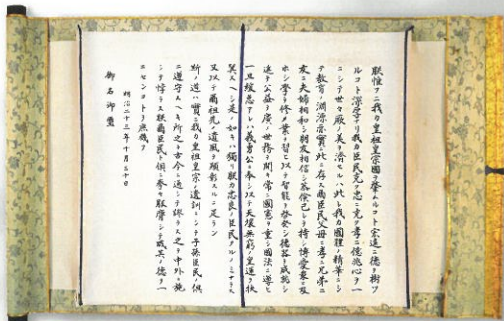 朕惟フニ我カ皇祖皇宗國ヲ肇ムルコト宏遠ニ德ヲ樹ツ
ルコト深厚ナリ我カ臣民克ク忠ニ克ク孝ニ億兆心ヲ一
ニシテ世々厥ノ美ヲ濟セルハ此レ我カ國體ノ精華ニシ
テ教育ノ淵源亦實ニ此ニ存ス爾臣民父母ニ孝ニ兄弟ニ
友ニ夫婦相和シ朋友相信シ恭儉己レヲ持シ博愛衆ニ及
ホシ學ヲ修メ業ヲ習ヒ以テ智能ヲ啓發シ德器ヲ成就シ
進テ公益ヲ廣メ世務ヲ開キ常ニ國憲ヲ重シ國法ニ遵ヒ
一旦緩急アレハ義勇公ニ奉シ以テ天壤無窮ノ皇運ヲ扶
翼スヘシ是ノ如キハ獨リ朕カ忠良ノ臣民タルノミナラス
又以テ爾祖先ノ遺風ヲ顯彰スルニ足ラン
斯ノ道ハ實ニ我カ皇祖皇宗ノ遺訓ニシテ子孫臣民ノ俱
ニ遵守スヘキ所之ヲ古今ニ通シテ謬ラス之ヲ中外ニ施
シテ悖ラス朕爾臣民ト俱ニ拳々服膺シテ咸其ノ德ヲ一
ニセンコトヲ庶幾フ
明治二十三年十月三十日
御名御璽